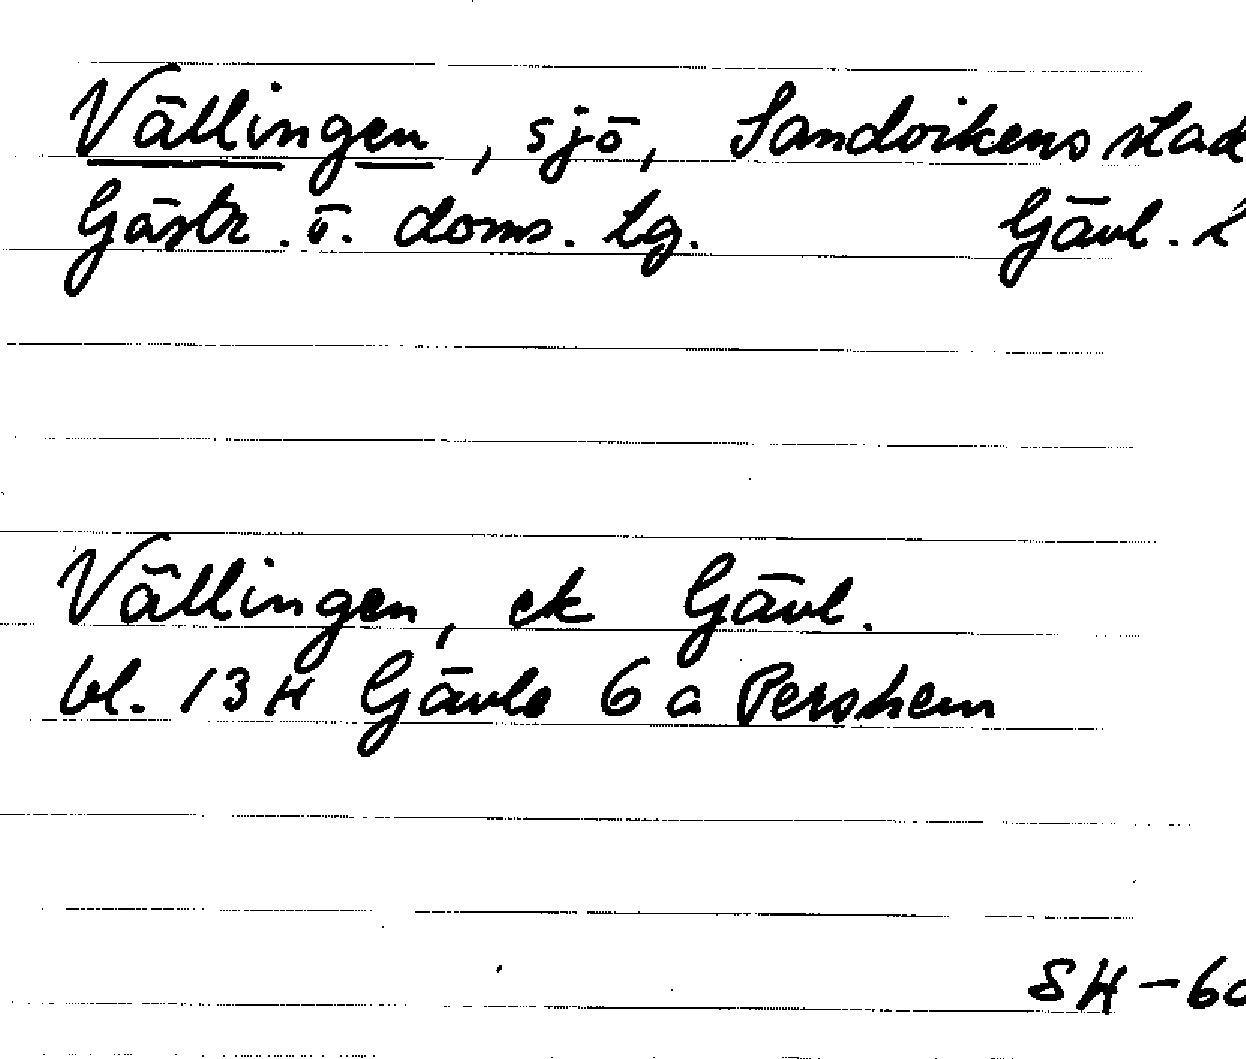 Vällingen, sjö, Sandvikens stad
Gästr. ö. doms. lg. Gävl. l
Vällingen, ek Gävl.
bl. 13 H Gävle 6 a Pershem
SH-60